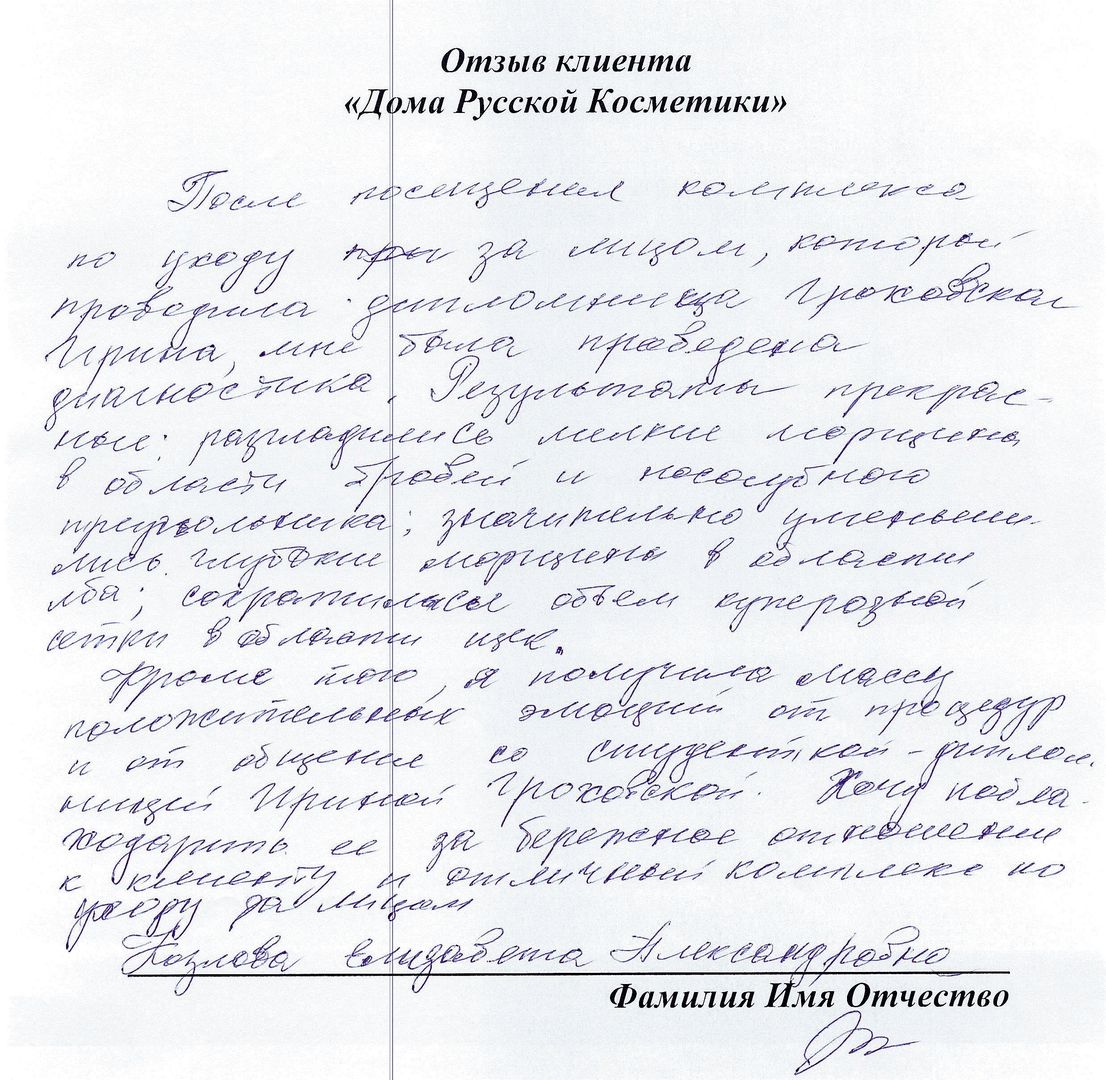 Отзыв клиента
«Дома Русской Косметики»
После посещения комплекса
по уходу при за лицом, который
проводила дипломница Гроховская
Ирина, мне была проведена
диагностика. Результаты прекрас-
ные: разгладились мелкие морщины
в области бровей и носогубного
треугольника; значительно уменьши-
лись глубокие морщины в области
лба; сократился объем куперозной
сетки в области щек.
Кроме того, я получила массу
положительных эмоций от процедур
и от общения со студенткой-диплом-
ницей Ириной Гроховской. Хочу побла-
годарить ее за бережное отношение
к клиенту и отличный комплекс по
уходу за лицом
Козлова Елизавета Александровна
Фамилия Имя Отчество